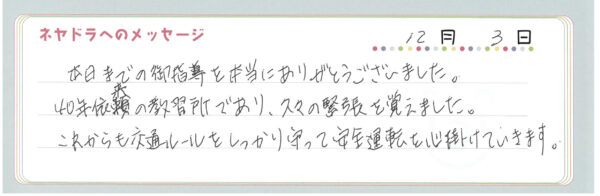 ネヤドラへのメッセージ
12月 3日
本日までの御指導を本当にありがとうございました。
40年依頼の教習所であり、久々の緊張を覚えました。
これからも交通ルールをしっかり守って安全運転を心掛けていきます。